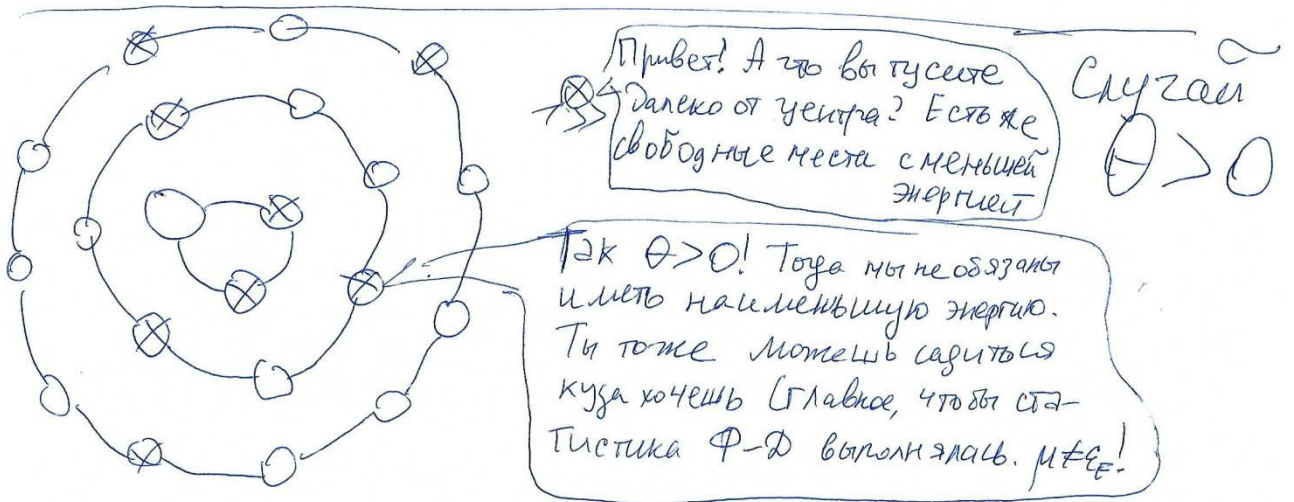 Привет! А что вы тусите
далеко от центра? Есть же
свободные места с меньшей
энергией
Случай
θ > 0
Так θ>0! Тогда мы не обязаны
иметь наименьшую энергию.
Ты тоже можешь садиться
куда хочешь (главное, чтобы ста-
тистика Ф-Д выполнялась. μ≠ε_F!